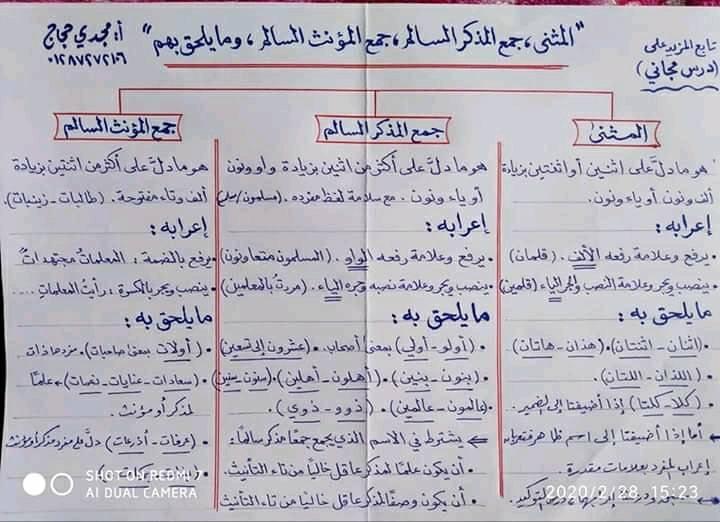 تابع المزيد على
(درس مجاني)
"المثنى، جمع المذكر السالم، جمع المؤنث السالم، وما يلحق بهم"
أ: مجدي حجاج
المثنى
هو ما دل على اثنين أو اثنتين بزيادة
ألف ونون أو ياء ونون.
إعرابه:
• يرفع وعلامة رفعه الألف. (قلمان)
• ينصب ويجر وعلامة النصب والجر الياء (قلمين)
ما يلحق به:
• (اثنان - اثنتان). (هذان - هاتان)
• (اللذان - اللتان).
• (كلا - كلتا) إذا أضيفتا إلى ضمير.
أما إذا أضيفتا إلى اسم ظاهر فتعربان
إعراب المفرد بعلامات مقدرة.
جمع المذكر السالم
هو ما دل على أكثر من اثنين بزيادة واو ونون
أو ياء ونون. مع سلامة لفظ مفرده. (مسلمون/مسلم)
إعرابه:
• يرفع وعلامة رفعه الواو. (المسلمون متعاونون)
• ينصب ويجر وعلامة نصبه وجره الياء. (مررت بالمعلمين)
ما يلحق به:
• (أولو - أولي) بمعنى أصحاب. • (عشرون إلى تسعين)
• (بنون - بنين). (أهلون - أهلين). (سنون - سنين)
• (عالمون - عالمين). • (ذوو - ذوي).
يشترط في الاسم الذي يجمع جمعًا مذكر سالمًا:
• أن يكون علمًا لمذكر عاقل خاليًا من تاء التأنيث.
• أن يكون وصفًا لمذكر عاقل خاليًا من تاء التأنيث
جمع المؤنث السالم
هو ما دل على أكثر من اثنتين بزيادة
ألف وتاء مفتوحة. (طالبات - زينبات).
إعرابه:
• يرفع بالضمة: المعلمات مجتهداتٌ
• ينصب ويجر بالكسرة: رأيت المعلماتِ...
ما يلحق به:
• (أولات) بمعنى صاحبات). مفردها ذات
• (سعادات - عنايات - نعمات) علمًا
لمذكر أو مؤنث.
• (عرفات - أذرعات) دل على مفرد مذكر أو مؤنث
SHOT ON REDMI 7
AI DUAL CAMERA
2020/2/28 15:23